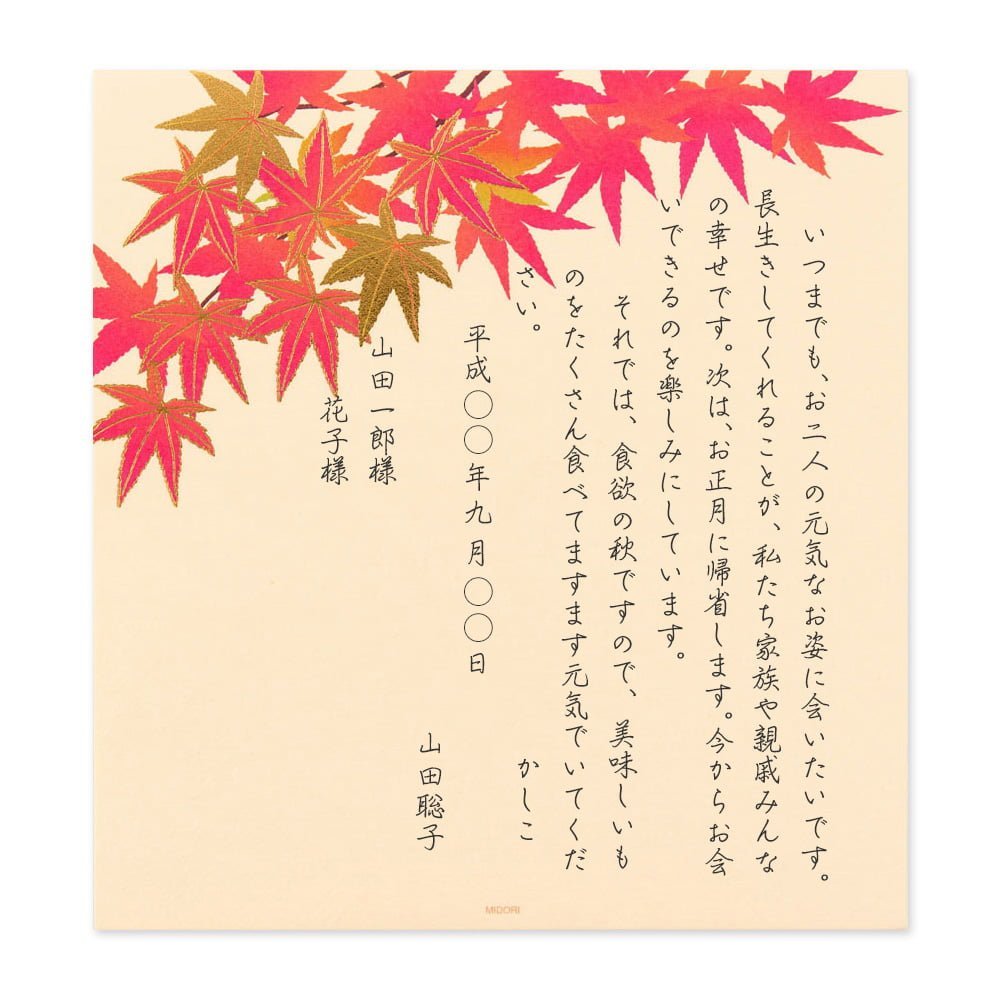 いつまでも、お二人の元気なお姿に会いたいです。
長生きしてくれることが、私たち家族や親戚みんな
の幸せです。次は、お正月に帰省します。今からお会
いできるのを楽しみにしています。
それでは、食欲の秋ですので、美味しいも
のをたくさん食べてますます元気でいてくだ
さい。
かしこ
平成〇〇年九月〇〇日
山田聡子
山田一郎様
花子様
MIDORI